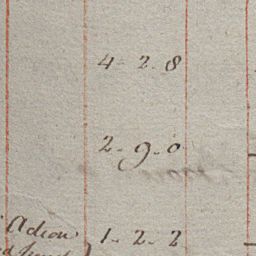 4 - 2 - 8
2 - 9 - 0
Adion 1 - 2 - 2